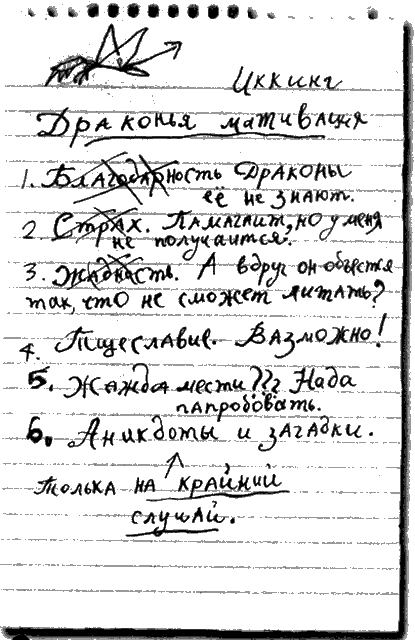 Иккинг
Драконья мативация
1. Благодарность Драконы
её не знают.
2. Страх. Памагаит, но у меня
не получаится.
3. Жадность. А вдруг он объестя
так, что не сможет литать?
4. Тщеславие. Вазможно!
5. Жажда мести??? Нада
папробовать.
6. Аникдоты и загадки.
толька на крайний
случай.